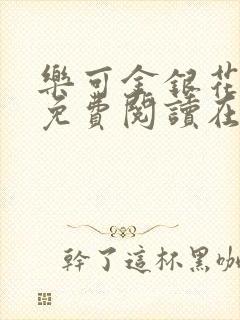 樂可金銀花
免費閱讀在
幹了這杯黑咖